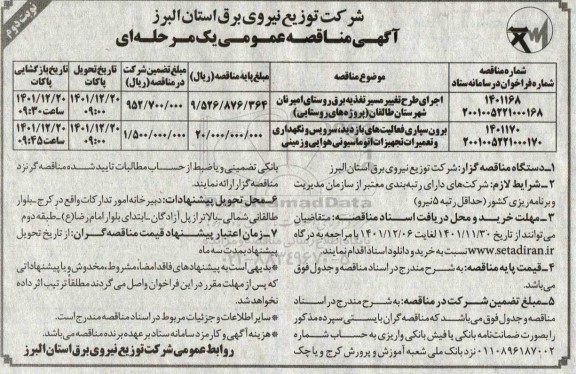 نوبت دوم
شرکت توزیع نیروی برق استان البرز
آگهی مناقصه عمومی یک مرحله‌ای
شماره مناقصه شماره فراخوان در سامانه ستاد | موضوع مناقصه | مبلغ پایه مناقصه (ریال) | مبلغ تضمین شرکت در مناقصه (ریال) | تاریخ تحویل پاکات | تاریخ بازگشایی پاکات
۱۴۰۱۱۶۸ ۲۰۰۱۰۰۵۲۲۱۰۰۰۱۶۸ | اجرای طرح تغییر مسیر تغذیه برق روستای امیرنان شهرستان طالقان (پروژه‌های روستایی) | ۹/۵۲۶/۸۷۶/۳۶۴ | ۹۵۲/۷۰۰/۰۰۰ | ۱۴۰۱/۱۲/۲۰ ۰۹:۰۰ | ۱۴۰۱/۱۲/۲۰ ۰۹:۳۰
۱۴۰۱۱۷۰ ۲۰۰۱۰۰۵۲۲۱۰۰۰۱۷۰ | برون سپاری فعالیت‌های بازدید، سرویس و نگهداری و تعمیرات تجهیزات اتوماسیونی هوایی و زمینی | ۲۰/۰۰۰/۰۰۰/۰۰۰ | ۱/۵۰۰/۰۰۰/۰۰۰ | ۱۴۰۱/۱۲/۲۰ ۰۹:۰۰ | ۱۴۰۱/۱۲/۲۰ ۰۹:۴۵
۱ـ دستگاه مناقصه گزار: شرکت توزیع نیروی برق استان البرز
۲ـ شرایط لازم: شرکت‌های دارای رتبه‌بندی معتبر از سازمان مدیریت
و برنامه‌ریزی کشور (حداقل رتبه ۵ نیرو)
۳ـ مهلت خرید و محل دریافت اسناد مناقصه: متقاضیان
می‌توانند از تاریخ ۱۴۰۱/۱۱/۳۰ لغایت ۱۴۰۱/۱۲/۰۶ با مراجعه به درگاه
www.setadiran.ir نسبت به خرید و دانلود اسناد اقدام نمایند.
۴ـ قیمت پایه مناقصه: به شرح مندرج در اسناد مناقصه و جدول فوق
می‌باشد.
۵ـ مبلغ تضمین شرکت در مناقصه: به شرح مندرج در اسناد
مناقصه و جدول فوق می‌باشد که مناقصه گران بایستی سپرده مذکور
را بصورت ضمانت‌نامه بانکی یا فیش بانکی واریزی به حساب شماره
۰۱۱۰۸۹۶۱۸۷۰۰۲ نزد بانک ملی شعبه آموزش و پرورش کرج و یا چک
بانکی تضمینی و یا ضبط از حساب مطالبات تایید شده مناقصه گر نزد
مناقصه گزار ارائه نمایند.
۶ـ محل تحویل پیشنهادات: دبیرخانه امور تدارکات واقع در کرج ـ بلوار
طالقانی شمالی ـ بالاتر از پل آزادگان ـ ابتدای بلوار امام رضا(ع) ـ طبقه دوم
۷ـ زمان اعتبار پیشنهاد قیمت مناقصه گران: از تاریخ تحویل
پیشنهاد بمدت سه ماه
* بدیهی است به پیشنهادهای فاقد امضاء، مشروط، مخدوش و یا پیشنهاداتی
که پس از مهلت مقرر در این فراخوان واصل می‌گردند مطلقا ترتیب اثر داده
نخواهد شد.
* سایر اطلاعات و جزئیات مربوط در اسناد مناقصه مندرج است.
* هزینه آگهی و کارمزد سامانه ستاد بر عهده برنده مناقصه می‌باشد.
روابط عمومی شرکت توزیع نیروی برق استان البرز